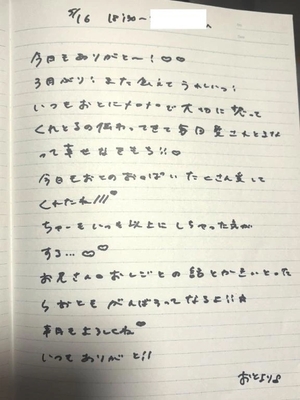 3/16 18:30〜
今日もありがと〜!♡♡
3月ぶり!また会えてうれしいっ!
いつもおとにメロメロで大切に想って
くれとるの伝わってきて毎回愛されとるな
って幸せなきもち!!♡
今日もおとのおっぱいたくさん愛して
くれたね///♡
ちゅーもいつも以上にしちゃった気が
する...♡♡
お兄さんのおしごとの話とかきいとった
らおともがんばろってなるよ!!☆
来月もよろしくね♡
いつもありがと!!
おとより